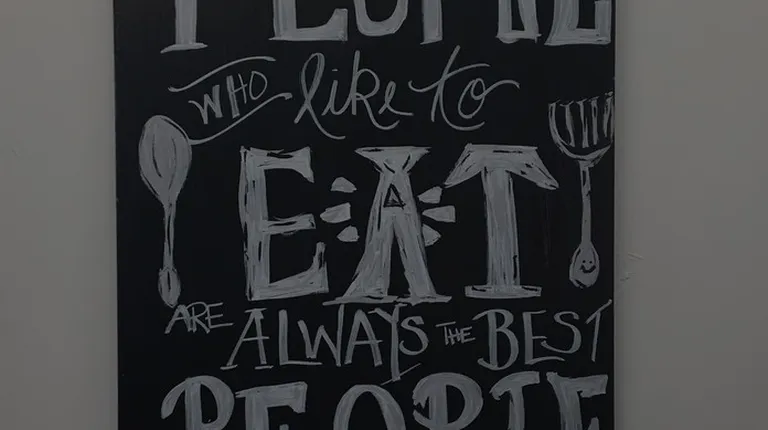 PEOPLE
WHO like to
EAT
ARE ALWAYS THE BEST
PEOPLE